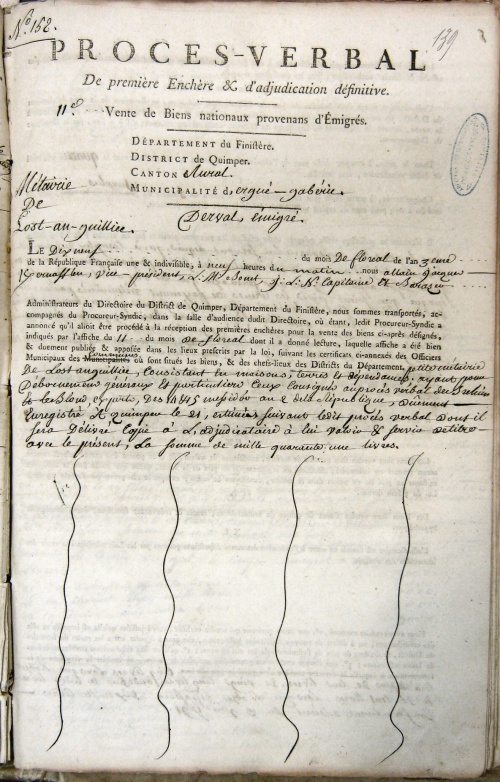 N.° 152.
139
PROCES-VERBAL
De première Enchère & d'adjudication définitive.
11.e Vente de Biens nationaux provenans d'Émigrés.
DÉPARTEMENT du Finistère.
DISTRICT de Quimper.
CANTON Rural.
MUNICIPALITÉ d'ergué-gabéric.
Métairie
De
Lost-an-guillic.
Derval, émigré.
LE Dixneuf du mois De floreal de l'an 3eme
de la République Française une & indivisible, à neuf heures du matin nous allain jacques
vice-président, J. L. N. Capitaine Et
Administrateurs du Directoire du District de Quimper, Département du Finistère, nous sommes transportés, ac-
compagnés du Procureur-Syndic, dans la salle d'audience dudit Directoire, où étant, ledit Procureur-Syndic a
annoncé qu'il alloit être procédé à la réception des premières enchères pour la vente des biens ci-après désignés,
indiqués par l'affiche du 11 du mois de floreal dont il a donné lecture, laquelle affiche a été bien
& duement publiée & apposée dans les lieux prescrits par la loi, suivant les certificats ci-annexés des Officiers
Municipaux des communes où sont situés les biens, & des chefs-lieux des Districts du Département. petite métairie
De Lost anguillic, Consistant En maisons, terres et dépendances, ayant pour
Debornemens généraux et particuliers Ceux Consignés au procès verbal du
Experts, Des 14 & 5 messidor an 2 de la République, Duement
Enregistré à quimper le 21, suivant ledit procès verbal dont il
sera Délivré Copie à L'adjudicataire à lui valoir & servir de titre
avec le présent, La somme de mille quarante une livres.